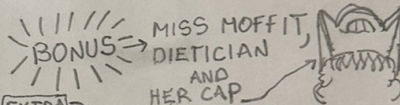 BONUS → MISS MOFFIT,
DIETICIAN
AND
HER CAP
EXTRA